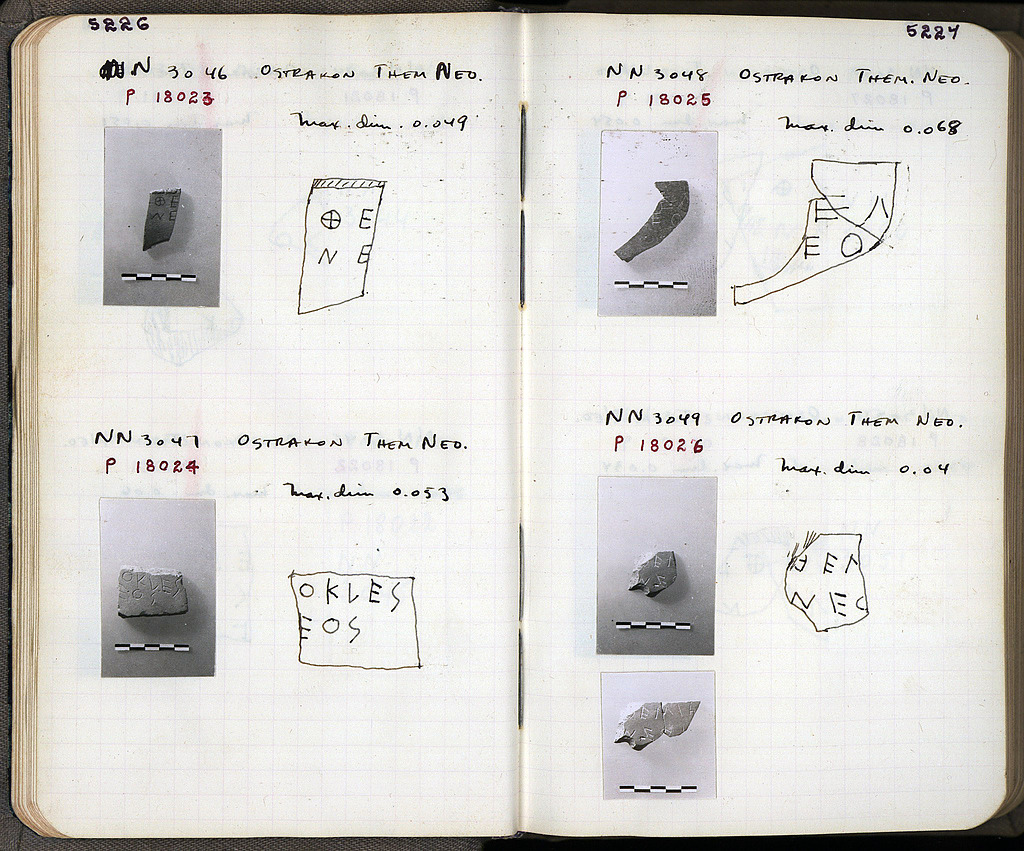 5226
NN 3046 OSTRAKON THEM NEO.
P 18023
Max. dim. 0.049
⊕ E
N E
NN 3047 OSTRAKON THEM NEO.
P 18024
Max. dim 0.053
OKLES
EOS
5227
NN 3048 OSTRAKON THEM. NEO.
P 18025
Max. dim 0.068
E
E O
NN 3049 OSTRAKON THEM. NEO.
P 18026
Max. dim 0.04
E
N E